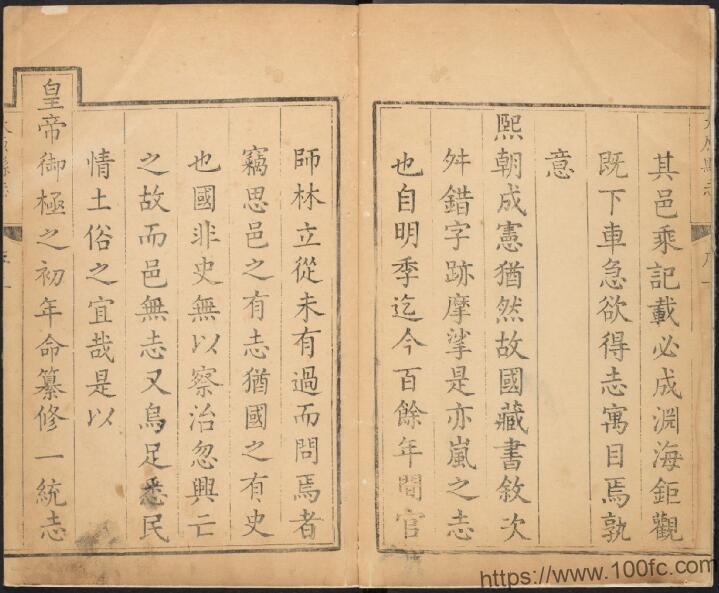 其邑乘記載必成淵海鉅觀
既下車急欲得志寓目焉孰
意
熙朝成憲猶然故國藏書敘次
舛錯字跡摩挲是亦嵐之志
也自明季迄今百餘年間官
師林立從未有過而問焉者
竊思邑之有志猶國之有史
也國非史無以察治忽興亡
之故而邑無志又烏足悉民
情土俗之宜哉是以
皇帝御極之初年命纂修一統志
https://www.100fc.com